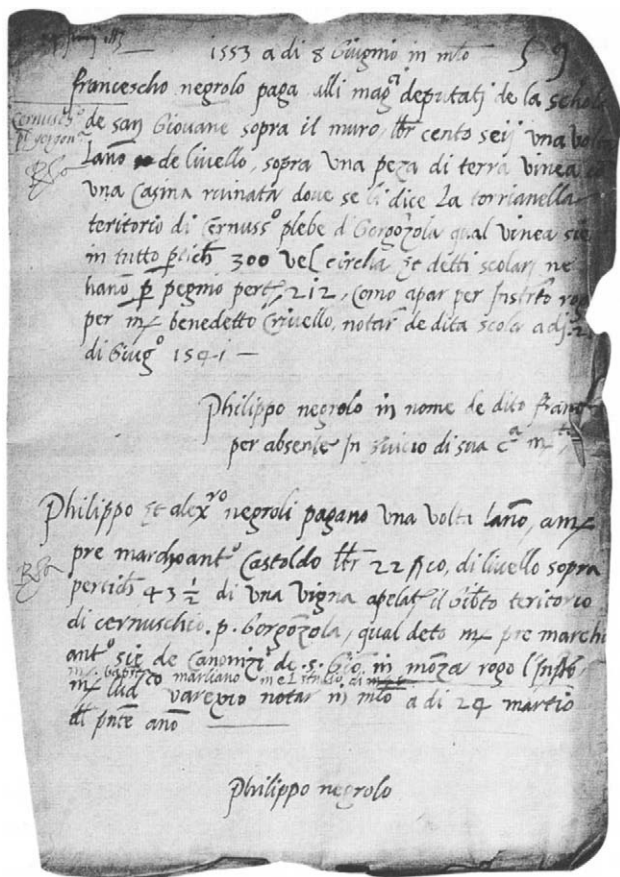 1553 a di 8 Giugnio in mlo
59
francescho negrolo paga alli mag.ci deputatj de la schola
Cernusch.o
de san Giouane sopra il muro, llr cento seij una volta
p. gorgon.a
lano de liuello, sopra una peza di terra vinea
una Casina ruinata doue se li dice La torrianella
teritorio di Cernuss.o plebe d Gorgozola qual vinea sie
in tutto ptich 300 vel circha et detti scolari ne
hano p pegnio pert. 212, como apar per Instrto rog
per mr benedetto Crivello, notar de dita scola adj. 2
di Giug.o 1541 —
Philippo negrolo in nome de dito franc
per absente In seruicio di sua c.a m.ta
Philippo et alex.ro negroli pagano una volta lano, a mr
pre marchoant.o Castoldo llr 22 co, di liuello sopra
pertich 43 ½ di una vigna apelat il Gibto teritorio
di cernuschio . p . Gorgozola, qual deto mr pre march
ant.o sie de Canonizi de . s . Gio. in moza rogo l Instto,
mr bapt marliano
mr Lud.co varexio notar in mlo a di 24 martio
del pnte ano
Philippo negrolo